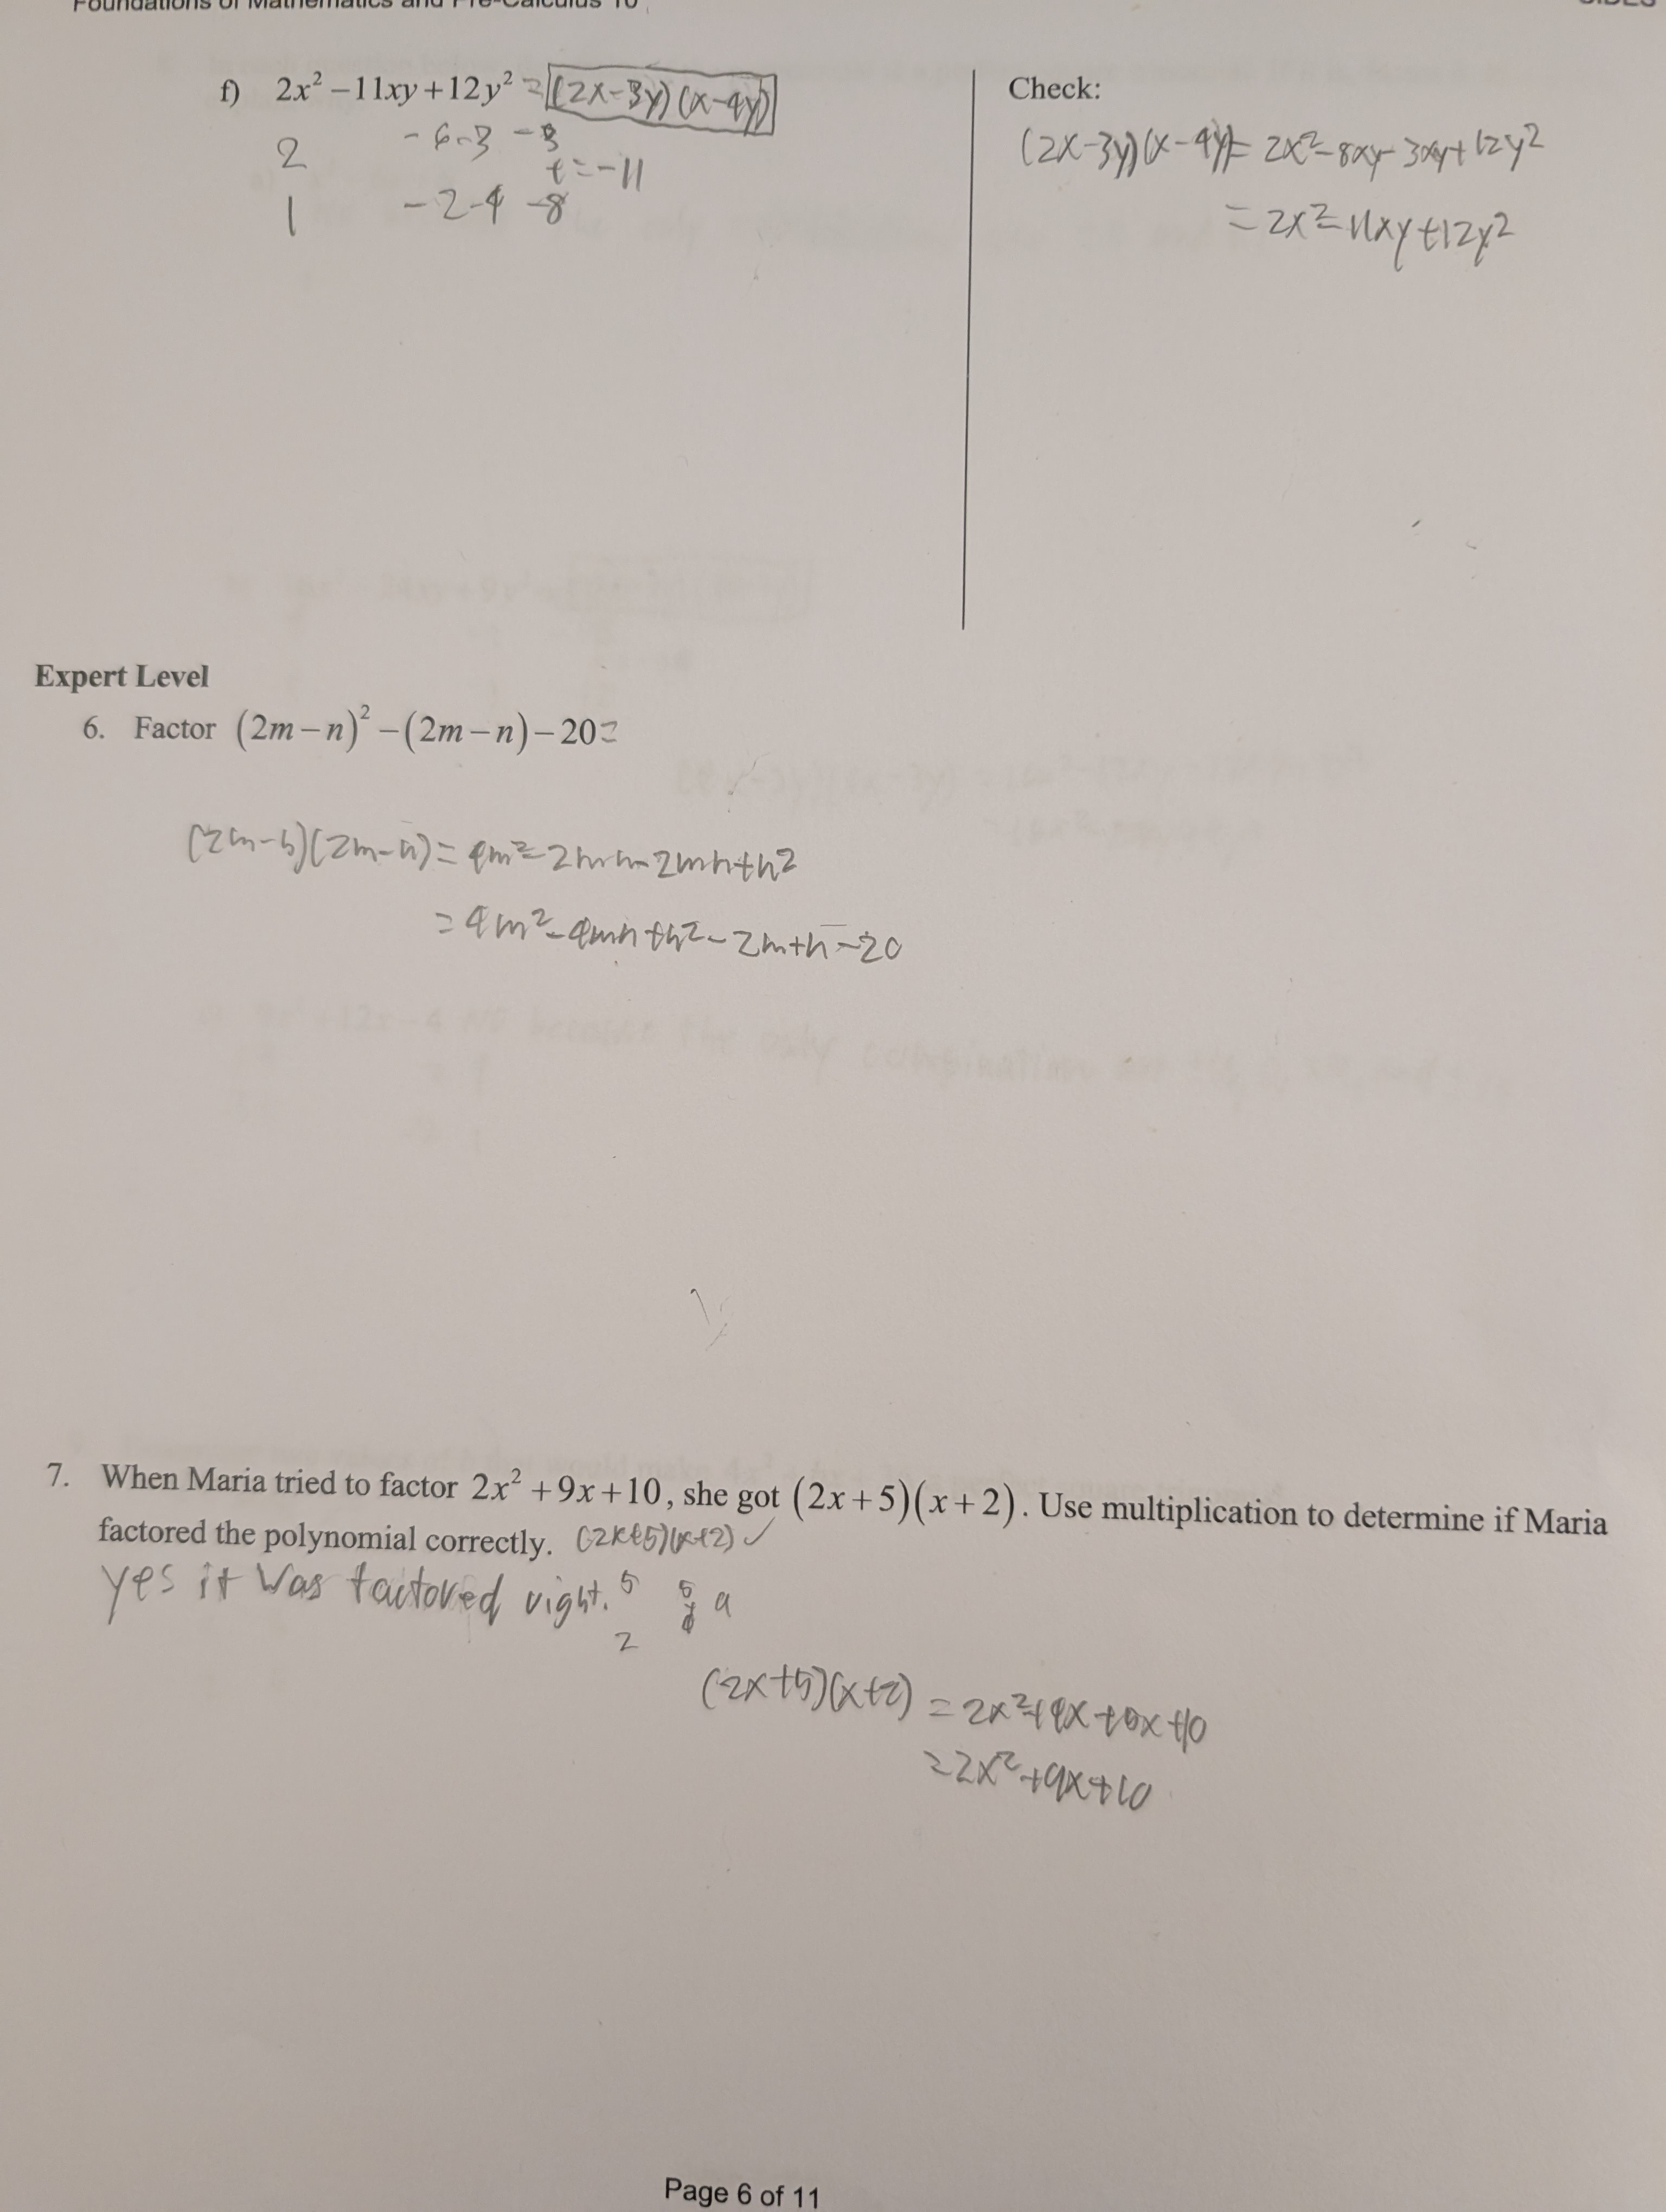 Foundations of Mathematics and Pre-Calculus 10
f) 2x² – 11xy + 12y² = (2x-3y)(x-4y)
Check:
2 -6 -3 -3
t = -11
1 -2 -4 -8
(2x-3y)(x-4y) = 2x²-8xy-3xy+12y²
= 2x²-11xy+12y²
Expert Level
6. Factor (2m – n)² – (2m – n) – 20 =
(2m-n)(2m-n) = 4m²-2mn-2mn+n²
= 4m²-4mn+n²-2m+n-20
7. When Maria tried to factor 2x² + 9x + 10, she got (2x + 5)(x + 2). Use multiplication to determine if Maria
factored the polynomial correctly. (2x+5)(x+2) ✓
yes it was factored right. 5 5 9
2
(2x+5)(x+2) = 2x²+4x+5x+10
= 2x²+9x+10
Page 6 of 11